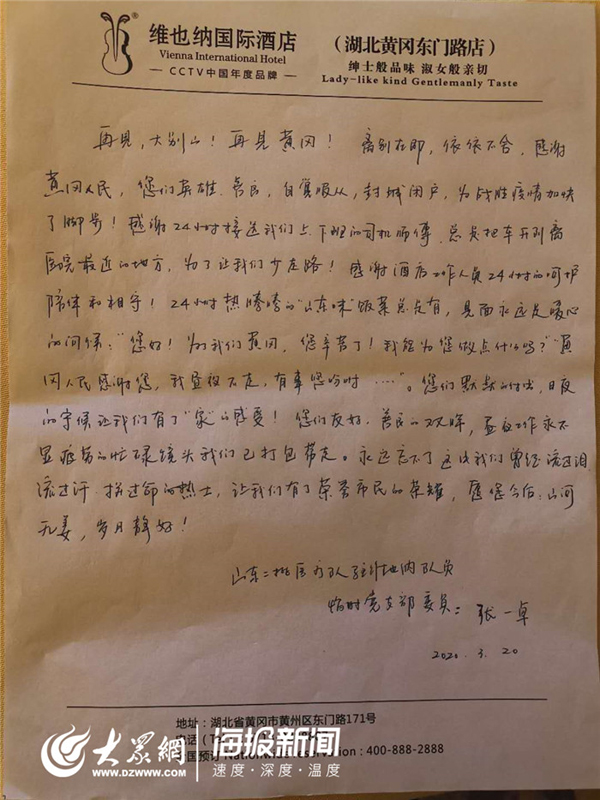 维也纳国际酒店
Vienna International Hotel
CCTV中国年度品牌
（湖北黄冈东门路店）
绅士般品味 淑女般亲切
Lady-like kind Gentlemanly Taste
再见，大别山！再见黄冈！ 离别在即，依依不舍，感谢
黄冈人民，您们英雄、善良，自觉服从，封城闭户，为战胜疫情加快
了脚步！感谢24小时接送我们上、下班的司机师傅，总是把车开到离
医院最近的地方，为了让我们少走路！感谢酒店工作人员24小时的呵护
陪伴和相守！24小时热腾腾的“山东味”饭菜总是有，见面永远是暖心
的问候：“您好！为了我们黄冈，您辛苦了！我能为您做点什么吗？”“黄
冈人民感谢您，我昼夜不走，有事您吩咐……”。您们默默的付出，日夜
的守候让我们有了“家”的感受！您们友好、善良的双眸，昼夜工作永不
显疲劳的忙碌镜头我们已打包带走。永远忘不了这片我们曾经流过泪
流过汗、拼过命的热土，让我们有了荣誉市民的荣耀，愿您今后：山河
无恙，岁月静好！
山东二批医疗队驻地纳队员
临时党支部委员：张一卓
2020.3.20
地址：湖北省黄冈市黄州区东门路171号
电话（T
国预订 National Reservation：400-888-2888
大众网
www.dzwww.com
海报新闻
速度·深度·温度